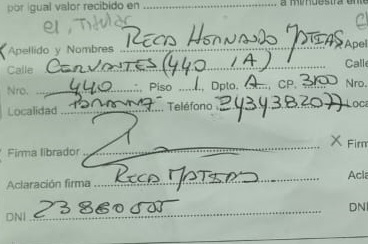 por igual valor recibido en
a mi/nuestra ente
el Titular
Apellido y Nombres RECA HERNANDO MATIAS Apel
Calle CERVANTES (440 1A) Calle
Nro. 440 Piso 1 Dpto. A CP. 3100 Nro.
Localidad PARANA Teléfono 3434382077 Loca
Firma librador X Firm
Aclaración firma RECA MATIAS Acla
DNI 23880505 DNI